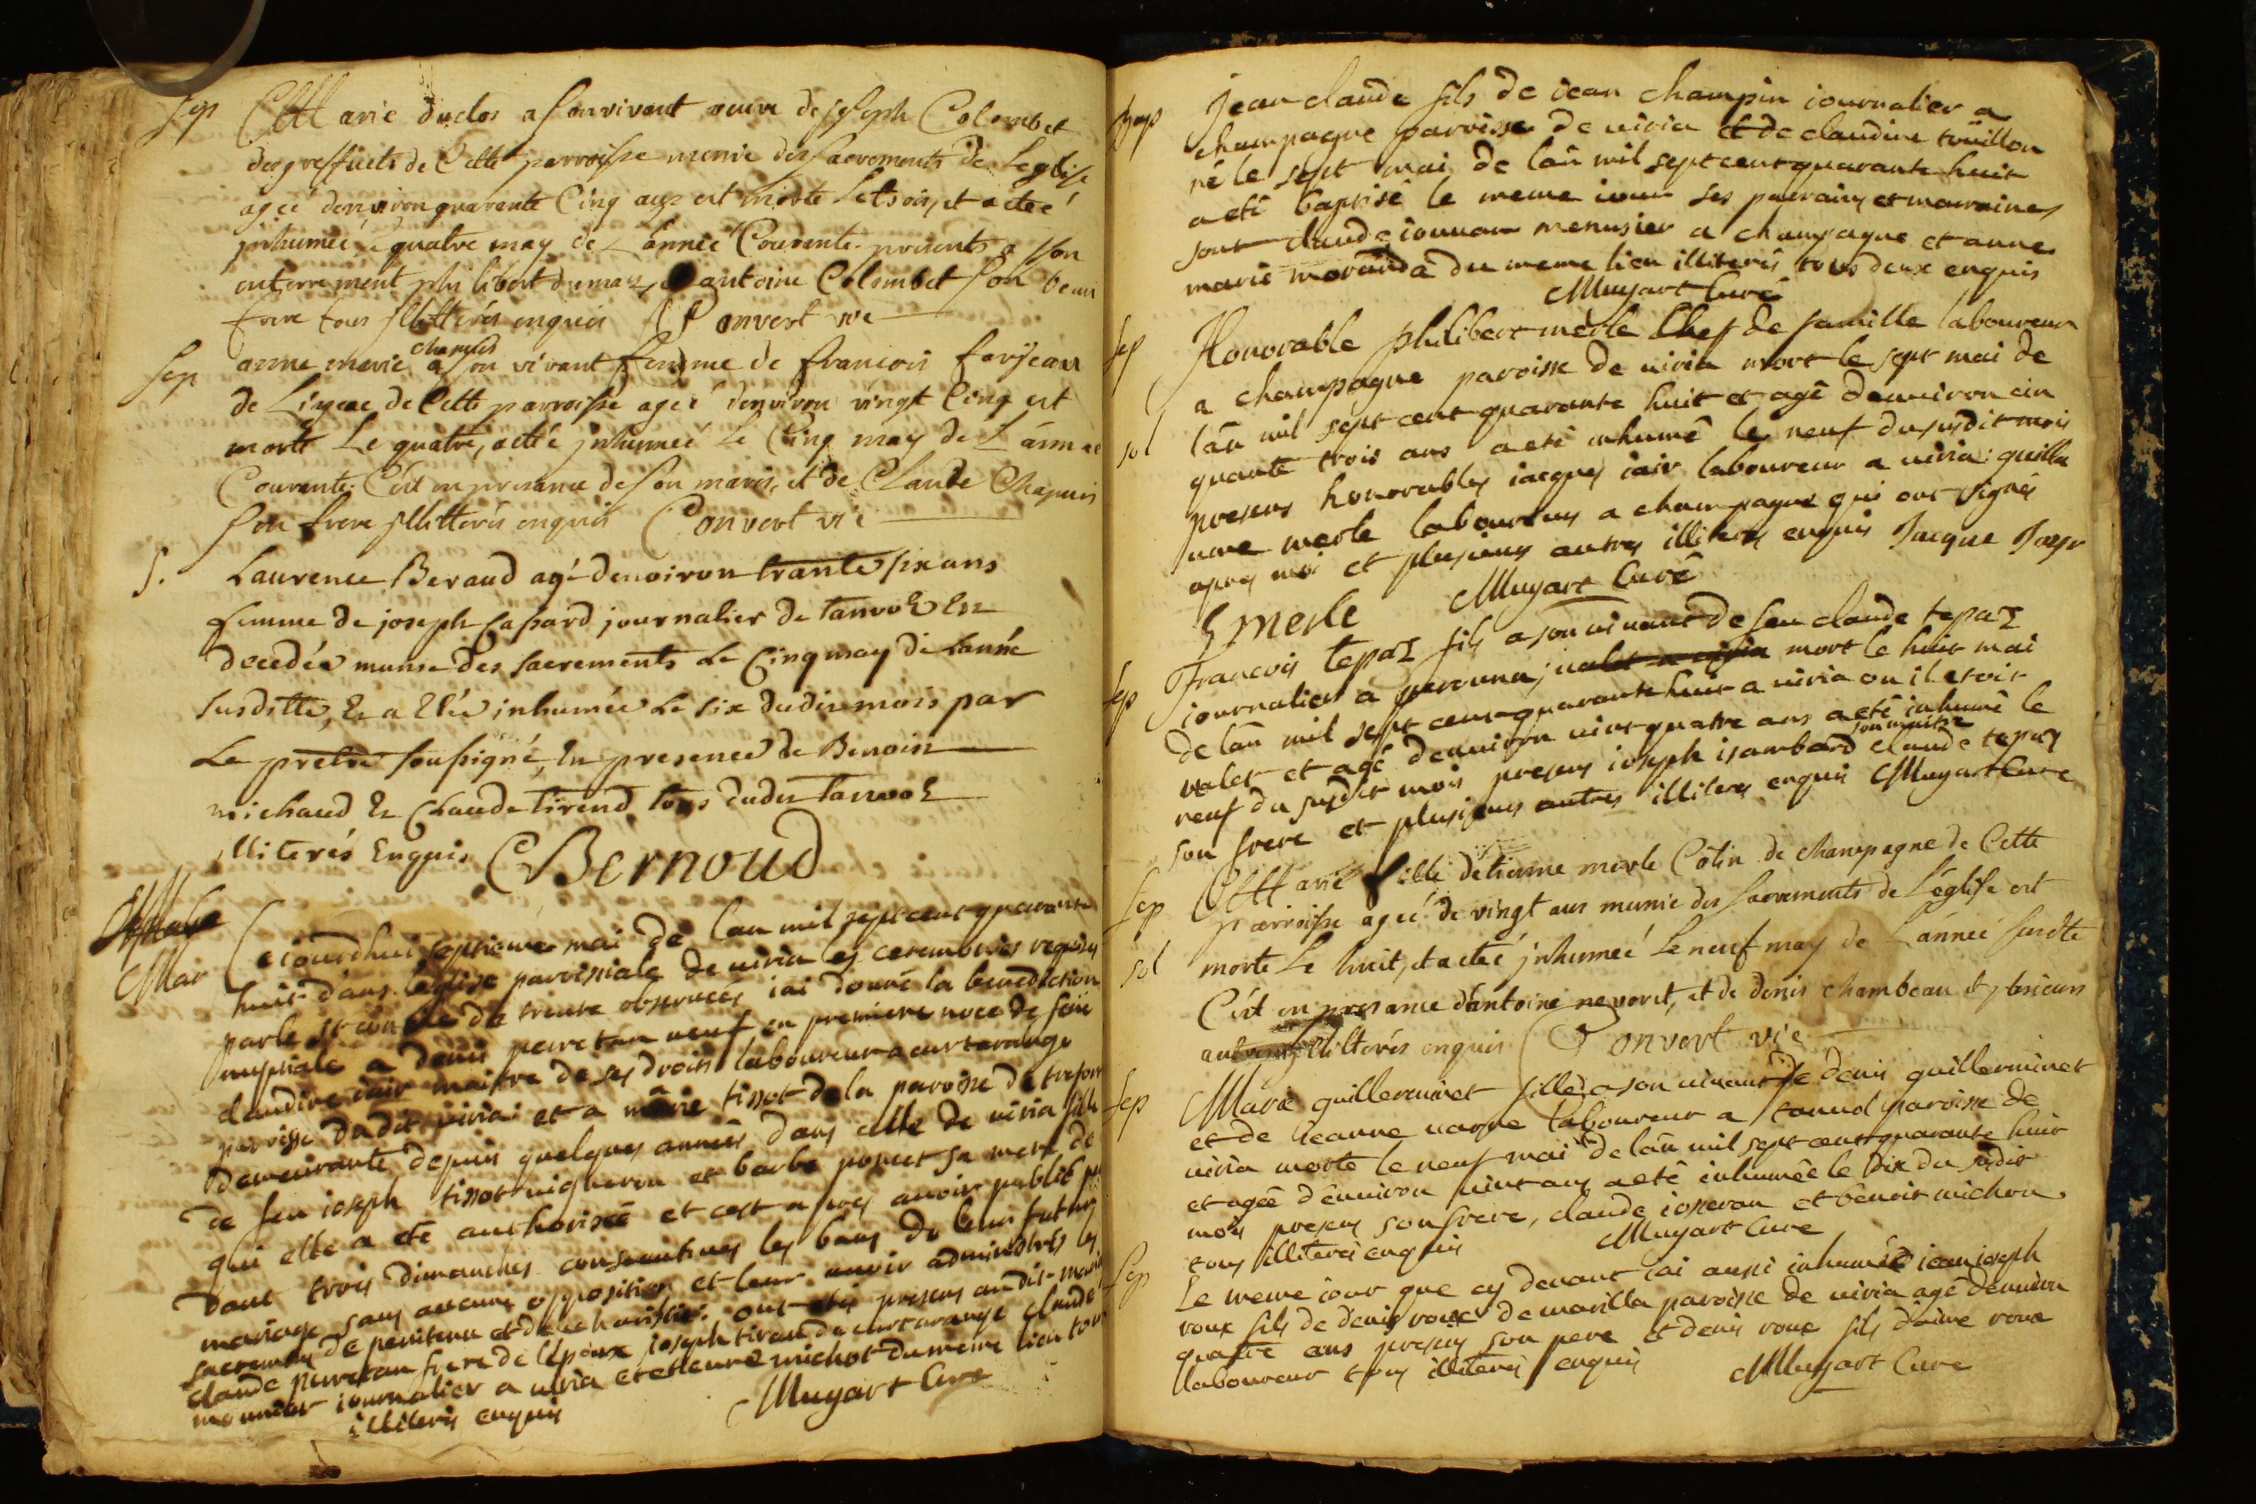 Sep Marie duclos a son vivant veuve de joseph Colombet
des greffiets de Cette parroisse munie des sacrements de Leglise
ageé denviron quarente Cinq ans est morte Le trois, et a eteé
jnhumeé quatre may de Lanneé Courente presents a son
enterrement philibert dumaz, antoine Colombet son beau
frere tous jllitterés enquis Convert vic
Sep anne marie chapuis a son vivant femme de francois farjean
de Lingeac de Cette parroisse ageé denviron vingt Cinq est
morte Le quatre, a eteé jnhumeé Le Cinq may de L'anneé
Courente. C'ést en presance de son maris, et de Claude Chapuis
son frere jllitterés enquis Convert vic
S. Laurence Beraud agé denviron trante six ans
femme de joseph Casard journalier de tanvol Est
decedée munie des sacrements Le Cinq may de Lannée
susditte, Et a Eté inhumée Le six dudit mois par
Le pretre soussigné, En presence de Benoit
michaud Et Claude tirend tous dudit tanvol
illiterés Enquis Bernoud
Mar Ceiourdhui septieme mai de lan mil sept cent quarante
huit dans leglise paroissiale de viria les ceremonies requises
par le st concile de trente observeés iai donné la benediction
nuptiale a denis perretan veuf en premiere noce de feüe
claudine iair maitre de ses droits laboureur a curtarange
paroisse dudit viria et a marie tissot de la paroisse de trefort
demeurante depuis quelques anneés dans celle de viria fille
de feu ioseph tissot vigneron et barbe poncet sa mere de
qui elle a ete authoriseé et cest apres avoir publié
dant trois dimanches consecutives les bans de leur futur
mariage sans aucune opposition et leur avoir administrés les
sacremens de penitence et deucharistie. ont etés presens audit mariage
claude perretan frere de lepoux ioseph tirand de curtarange claude
meunier iournalier a viria et etienne michot du meme lieu tous
illiterés enquis Muyart Curé
Bap Jean claude fils de iean champin iournalier a
champagne paroisse de viria et de claudine touillon
né le sept mai de lan mil sept cent quarante huit
a eté baptisé le meme iour ses parrains et marraines
sont claude iouvan menusier a champagne et anne
marie morand a du meme lieu illiterés tous deux enquis
Muyart Curé
Sep Honorable philibert merle chef de famille laboureur
a champagne paroisse de viria mort le sept mai de
sol lan mil sept cent quarante huit et agé denviron cin
quante trois ans a eté inhumé le neuf du susdit mois
presens honorables iacques iair laboureur a viria: guilla
ume merle laboureur a champagne qui ont signés
apres moi et plusieurs autres illiterés enquis Jacque Jayr
G merle Muyart Curé
Sep Francois tepaz fils a son vivant de feu claude tepaz
iournalier a peronna; mort le huit mai
de lan mil sept cent quarante huit a viria ou il etoit
valet et agé denviron vint quatre ans a eté inhumé le
neuf du susdit mois presens ioseph isambard son maitre claude tepaz
son frere et plusieurs autres illiteres enquis Muyart Curé
Sep Marie fille detienne merle Colin de champagne de Cette
parroisse ageé de vingt ans munie des sacrements de L'église est
sol morte Le huit, et a eteé jnhumeé Le neuf may de L'année susdte
C'ést en presance d'antoine nevoret, et de denis chambeau et plusieurs
autres jllitterés enquis Convert vic
Sep Marie guillerminet fille a son vivant de denis guillerminet
et de ieanne varne laboureur a tanvol paroisse de
viria morte le neuf mai de lan mil sept cent quarante huit
et ageé denviron vint ans a eté inhumeé le dix du susdit
mois presens son frere, claude iosseran et benoit michon
tous illiterés enquis Muyart Curé
Sep Le meme iour que cy devant iai aussi inhumé iean ioseph
roux fils de denis roux de marilla paroisse de viria agé denviron
quatre ans presens son pere et denis roux fils d'aimé roux
laboureur tous illiterés enquis Muyart Curé